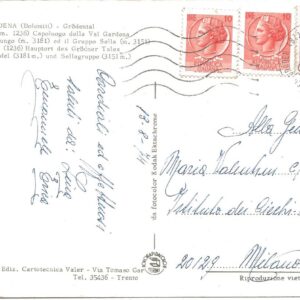 DENA (Dolomiti) - Grödental
m. 1236) Capoluogo della Val Gardena
ungo (m. 3181) ed il Gruppo Sella (m. 3151)
(1236) Hauptort des Grödner Tales
ofel (3181 m.) und Sellagruppe (3151 m.)
Cordiali ed affettuosi
saluti da: Lina
Emanuele Erna
13.8.74
da fotocolor Kodak Ektachrome
Alla Gent
Maria Valentini
Istituto dei Ciechi
20129 Milano
Ediz. Cartotecnica Valer - Via Tomaso Gar
Tel. 35436 - Trento
Riproduzione viet